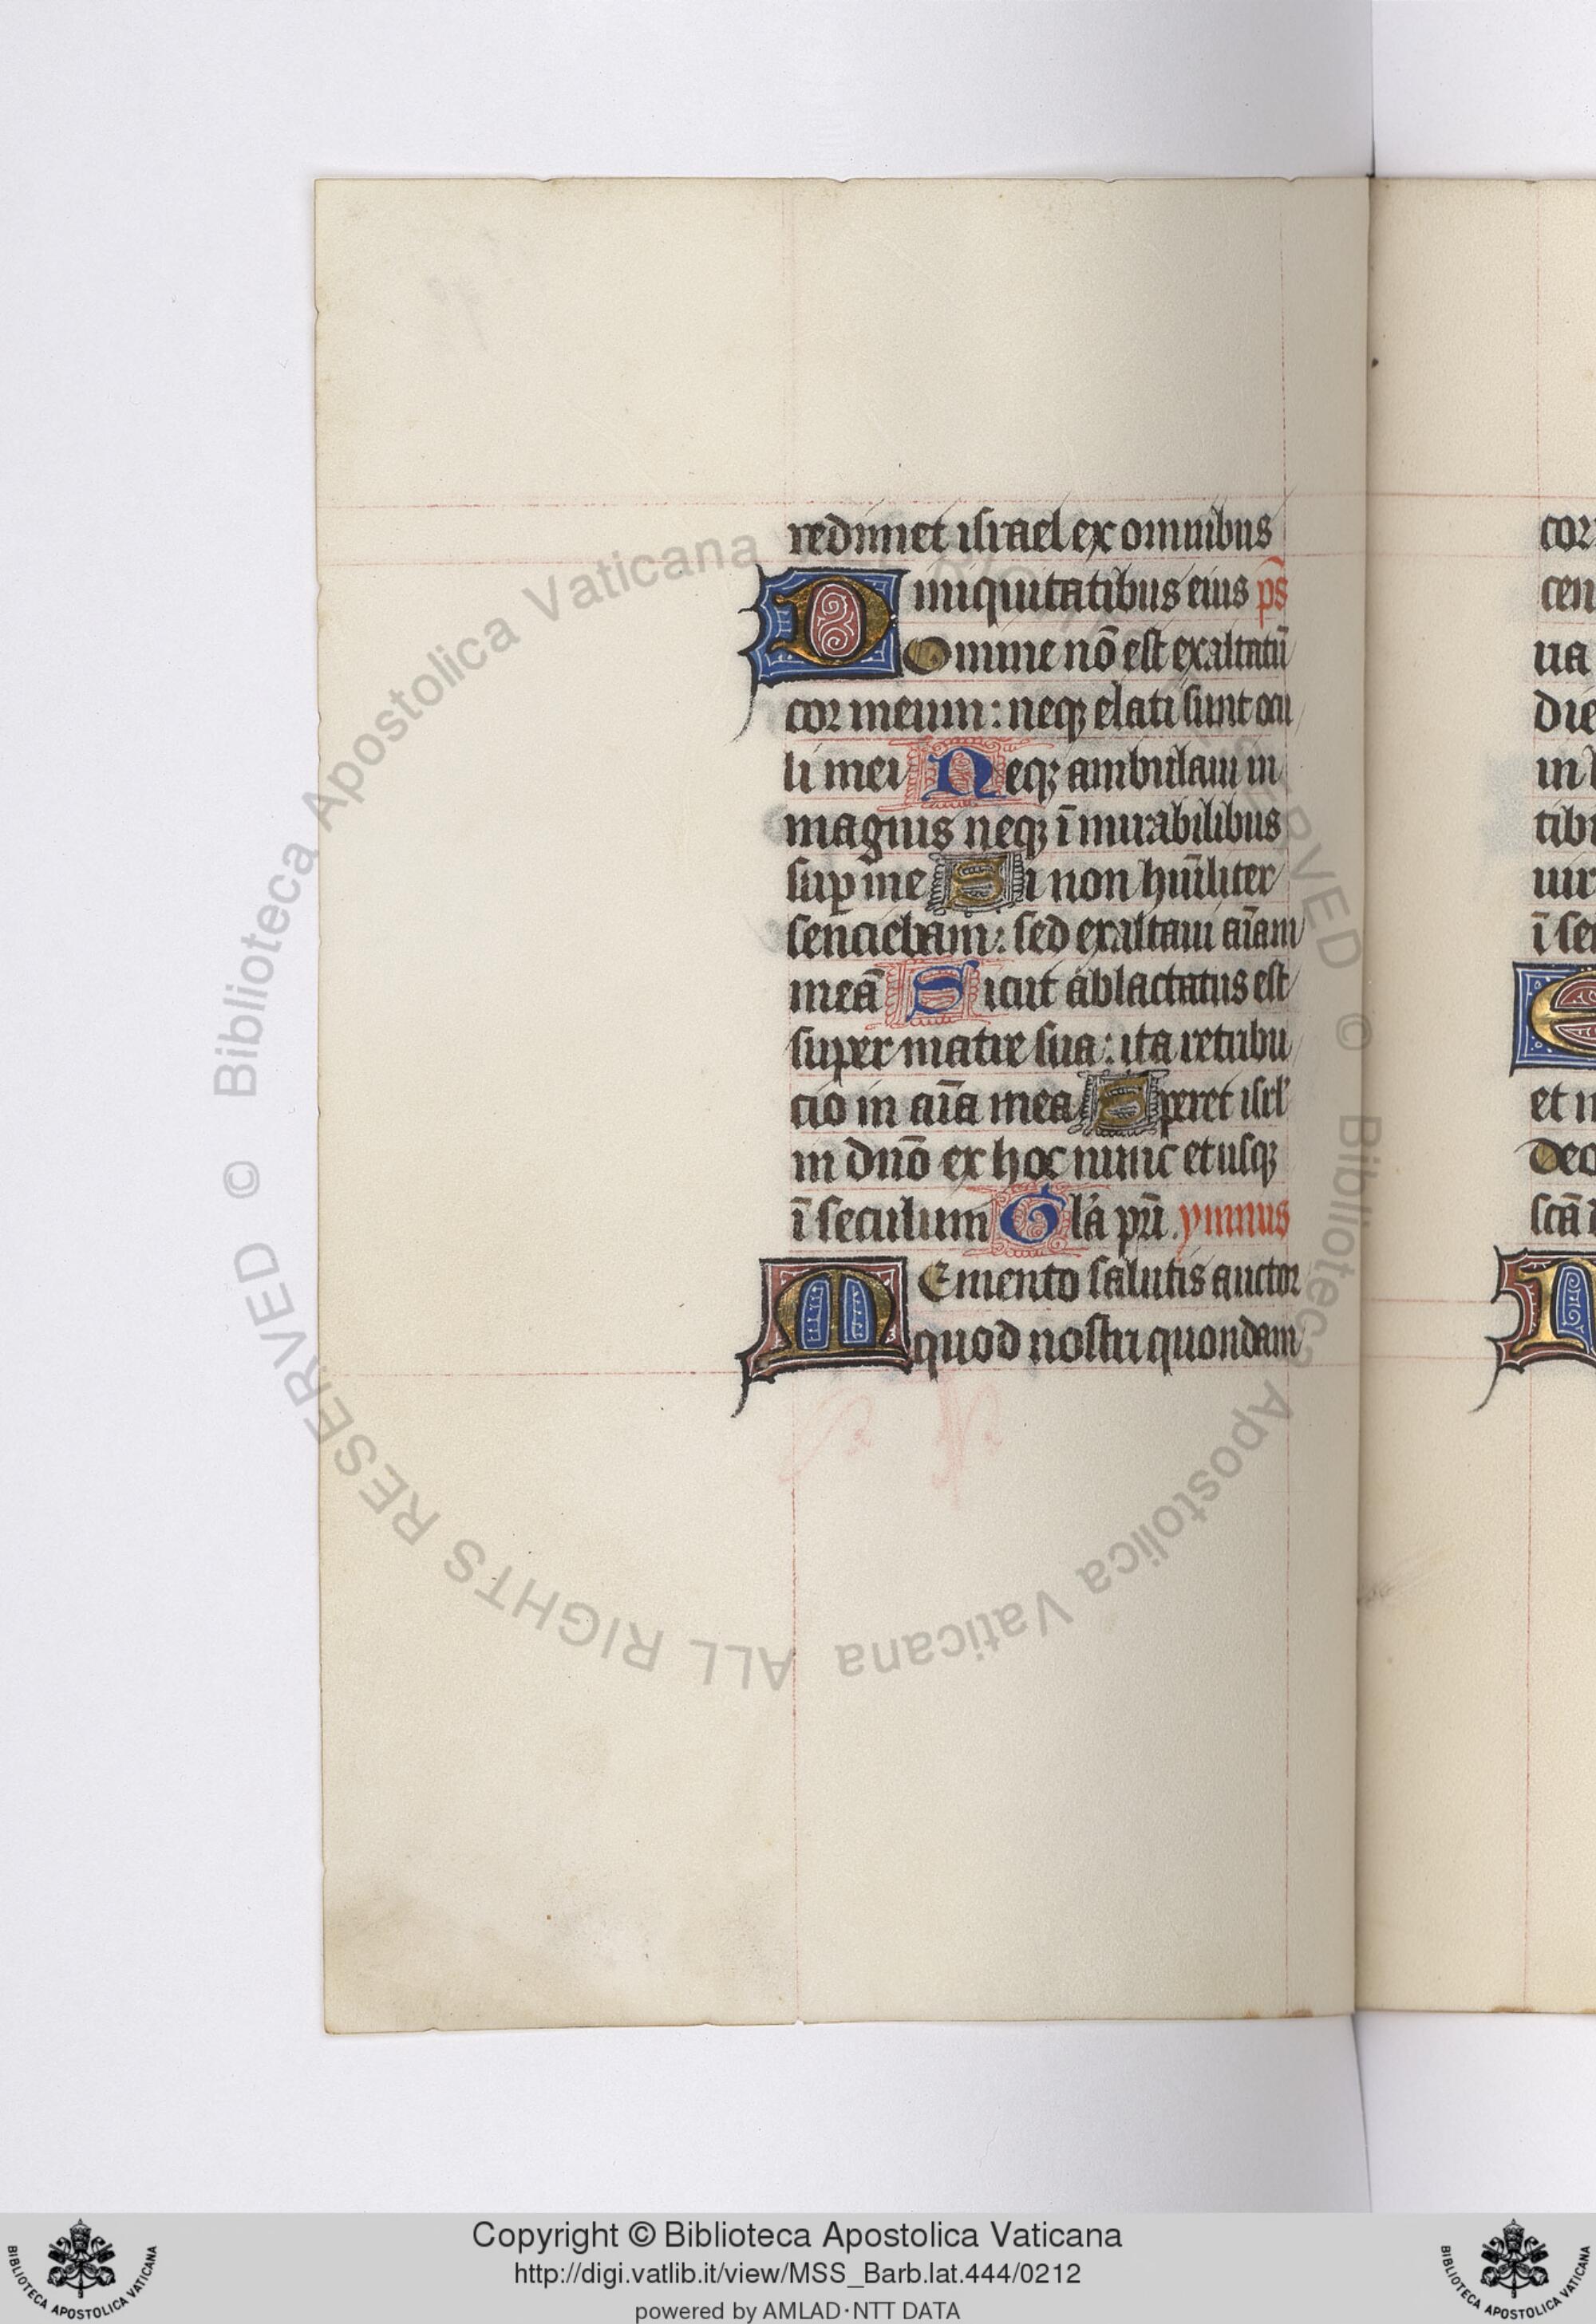 redimet israel ex omnibus
iniquitatibus eius ps̄
Domine nō est exaltatū
cor meum: neqꝫ elati sunt ocu
li mei Neqꝫ ambulaui in
magnis neqꝫ ī mirabilibus
suꝑ me Si non hūiliter
senciebam: sed exaltaui aīam
meā Sicut ablactatus est
super matre sua: ita retribu
cio in aīa mea Speret isrl'
in dnō ex hoc nunc et usqꝫ
ī seculum Gl'a pr̄i. ymnus
Memento salutis auctor
quod nostri quondam
cor
cen
ua
die
in
tibi
uir
ī se
E
et
deo
scā
© Biblioteca Apostolica Vaticana ALL RIGHTS RESERVED © Biblioteca Apostolica Vaticana ALL RIGHTS RESERVED
Copyright © Biblioteca Apostolica Vaticana
http://digi.vatlib.it/view/MSS_Barb.lat.444/0212
powered by AMLAD·NTT DATA
BIBLIOTECA APOSTOLICA VATICANA
BIBLIOTECA APOSTOLICA VATICANA